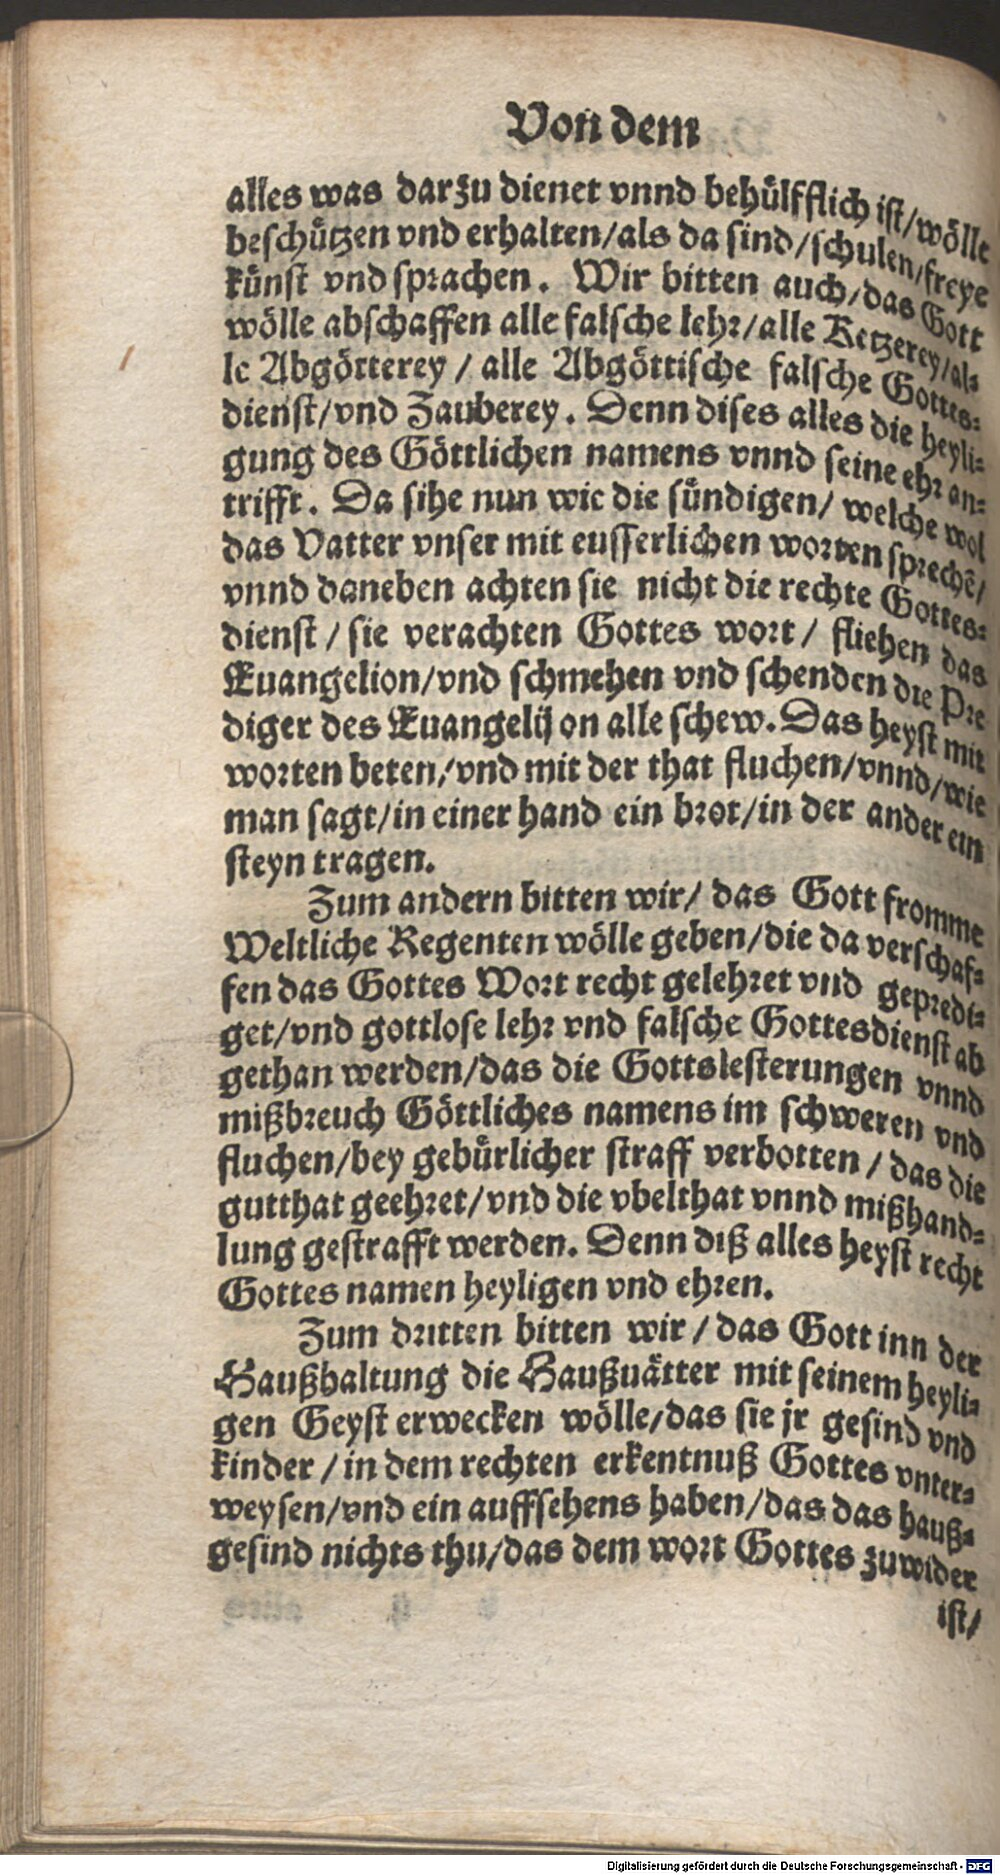 Von dem
alles was darzu dienet vnnd behülfflich ist/wölle
beschützen vnd erhalten/als da sind/schulen/freye
künst vnd sprachen. Wir bitten auch/das Gott
wölle abschaffen alle falsche lehr/alle Ketzerey/al⸗
le Abgötterey / alle Abgöttische falsche Gottes⸗
dienst/vnd Zauberey. Denn dises alles die heyli⸗
gung des Göttlichen namens vnnd seine ehr an⸗
trifft. Da sihe nun wie die sündigen/ welche wol
das Vatter vnser mit eusserlichen worten sprechē/
vnnd daneben achten sie nicht die rechte Gottes⸗
dienst / sie verachten Gottes wort / fliehen das
Euangelion/vnd schmehen vnd schenden die Pre
diger des Euangelij on alle schew. Das heyst mit
worten beten/vnd mit der that fluchen/vnnd/wie
man sagt/in einer hand ein brot/in der ander ein
steyn tragen.
Zum andern bitten wir/ das Gott fromme
Weltliche Regenten wölle geben/die da verschaf⸗
fen das Gottes Wort recht gelehret vnd gepredi⸗
get/vnd gottlose lehr vnd falsche Gottesdienst ab
gethan werden/das die Gottslesterungen vnnd
mißbreuch Göttliches namens im schweren vnd
fluchen/bey gebürlicher straff verbotten / das die
gutthat geehret/vnd die vbelthat vnnd mißhand⸗
lung gestrafft werden. Denn diß alles heyst recht
Gottes namen heyligen vnd ehren.
Zum dritten bitten wir / das Gott inn der
Haußhaltung die Haußuätter mit seinem heyli⸗
gen Geyst erwecken wölle/das sie jr gesind vnd
kinder / in dem rechten erkentnuß Gottes vnter⸗
weysen/vnd ein auffsehens haben/das das hauß⸗
gesind nichts thu/das dem wort Gottes zuwider
ist/
Digitalisierung gefördert durch die Deutsche Forschungsgemeinschaft - DFG